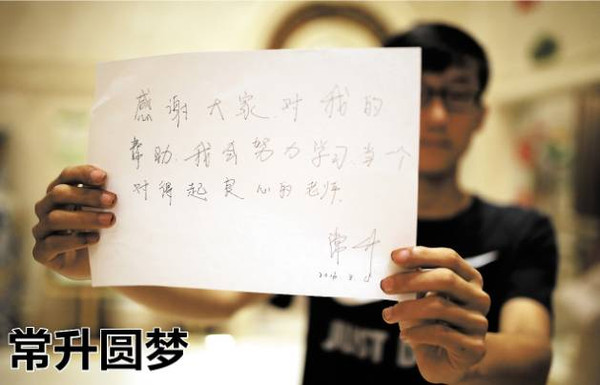 感谢大家对我的
帮助.我会努力学习.当一个
对得起良心的老师.
常升
JUST DO
常升圆梦